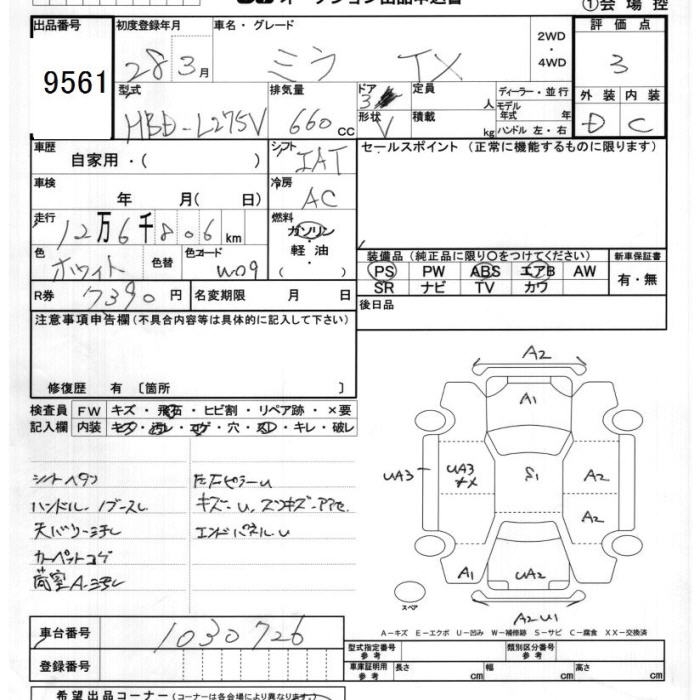 ①会場控
出品番号 初度登録年月 車名・グレード 評価点
9561 28 3月 ミラ TX 2WD ・ 4WD 3
型式 排気量 ドア 3 定員 人 ディーラー・並行 外装 内装
HBD-L275V 660 cc 形状 V 積載 kg モデル年式 年 ハンドル 左・右 D C
車歴 自家用・( ) シフト IAT セールスポイント (正常に機能するものに限ります)
車検 年 月( 日) 冷房 AC
走行 12万6千806km 燃料 ガソリン・軽油・( )
色 ホワイト 色替 色コード W09
装備品(純正品に限り○をつけてください) 新車保証書
PS PW ABS エアB AW 有・無
SR ナビ TV カワ
R券 7390円 名変期限 月 日 後日品
注意事項申告欄(不具合内容等は具体的に記入して下さい)
修復歴 有 〔箇所 〕
検査員 FW キズ・飛石・ヒビ割・リペア跡・×要
記入欄 内装 キズ・汚レ・コゲ・穴・スレ・キレ・破レ
シートヘタリ
天バリ汚レ エンドパネルU
カーペットコゲ
荷室A汚レ
A2
A1
UA3 UA3 S1 A2
A2
A1 UA2
A2U1
スペア
A-キズ E-エクボ U-凹み W-補修跡 S-サビ C-腐食 XX-交換済
車台番号 1030726
登録番号
型式指定番号 参考 類別区分番号 参考
車庫証明用 参考 長さ cm 幅 cm 高さ cm
希望出品コーナー(コーナーは各会場により異なります)